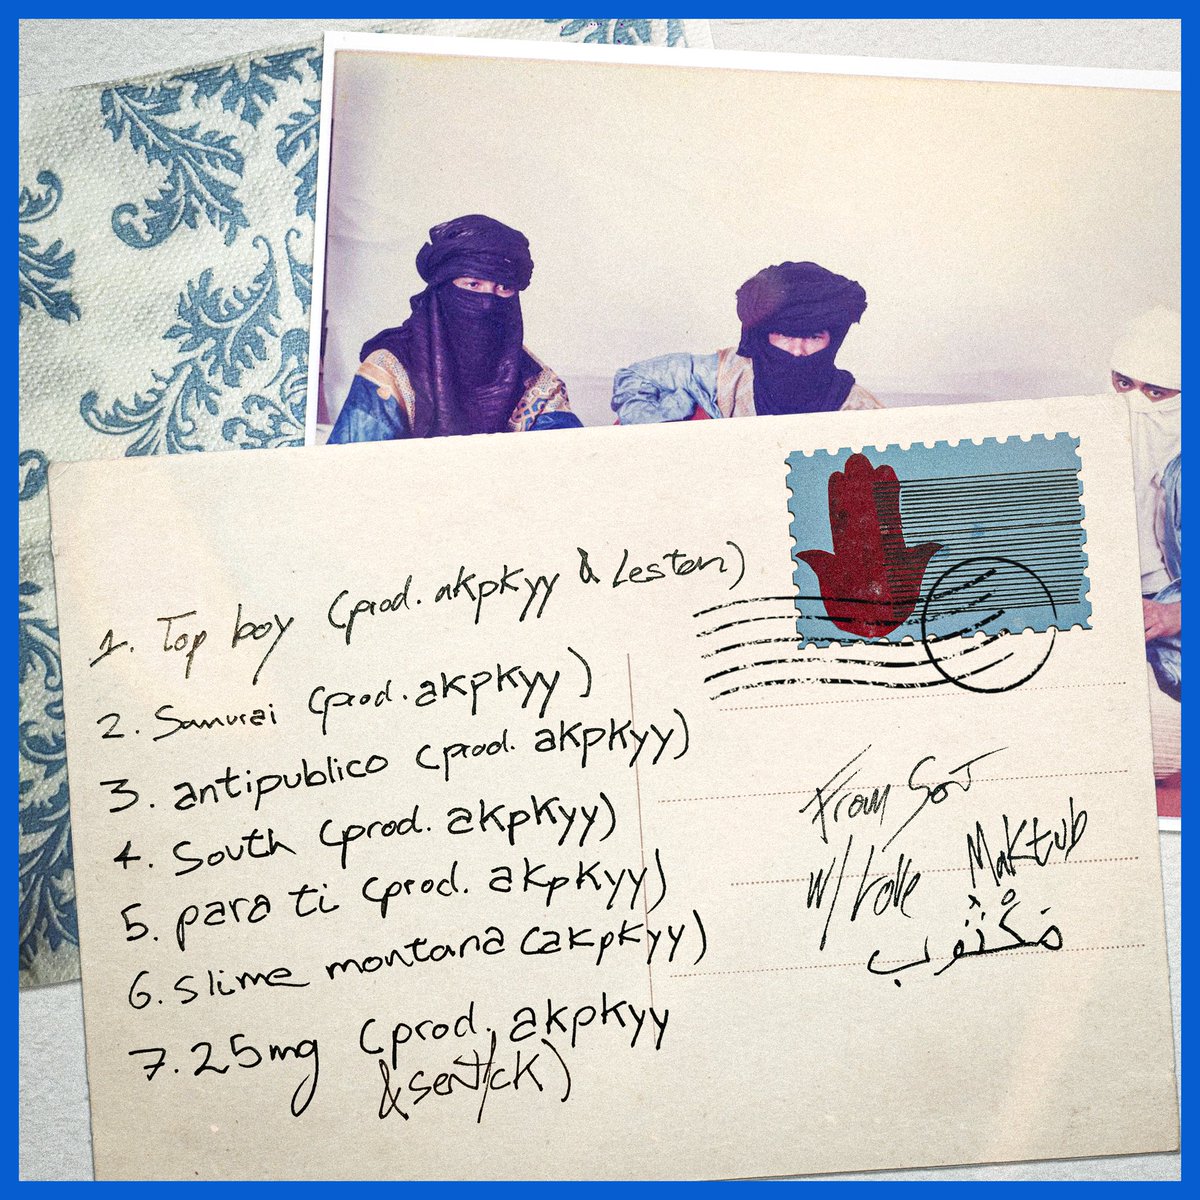 1. Top boy (prod. akpkyy & Leston)
2. Samurai (prod. akpkyy)
3. antipublico (prod. akpkyy)
4. South (prod. akpkyy)
5. para ti (prod. akpkyy)
6. slime montana (akpkyy)
7. 25mg (prod. akpkyy
&
From
w/ Love Maktub
مَكْتُوب